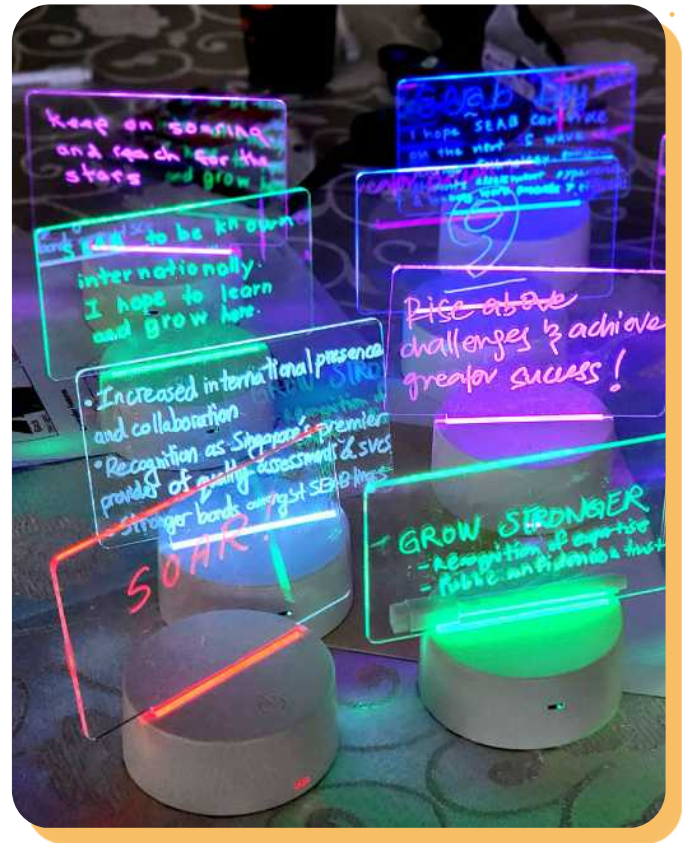 keep on soaring
and reach for the
stars
Seab
I hope SEAB can ride
on the next wave
SEAB to be known
internationally.
I hope to learn
and grow here.
Rise above
challenges & achieve
greater success!
• Increased international presence
and collaboration
• Recognition as Singapore's premier
provider of quality assessments & svcs
• Stronger bonds amongst SEAB
SOAR!
GROW STRONGER
- Recognition of expertise
- Public confidence & trust